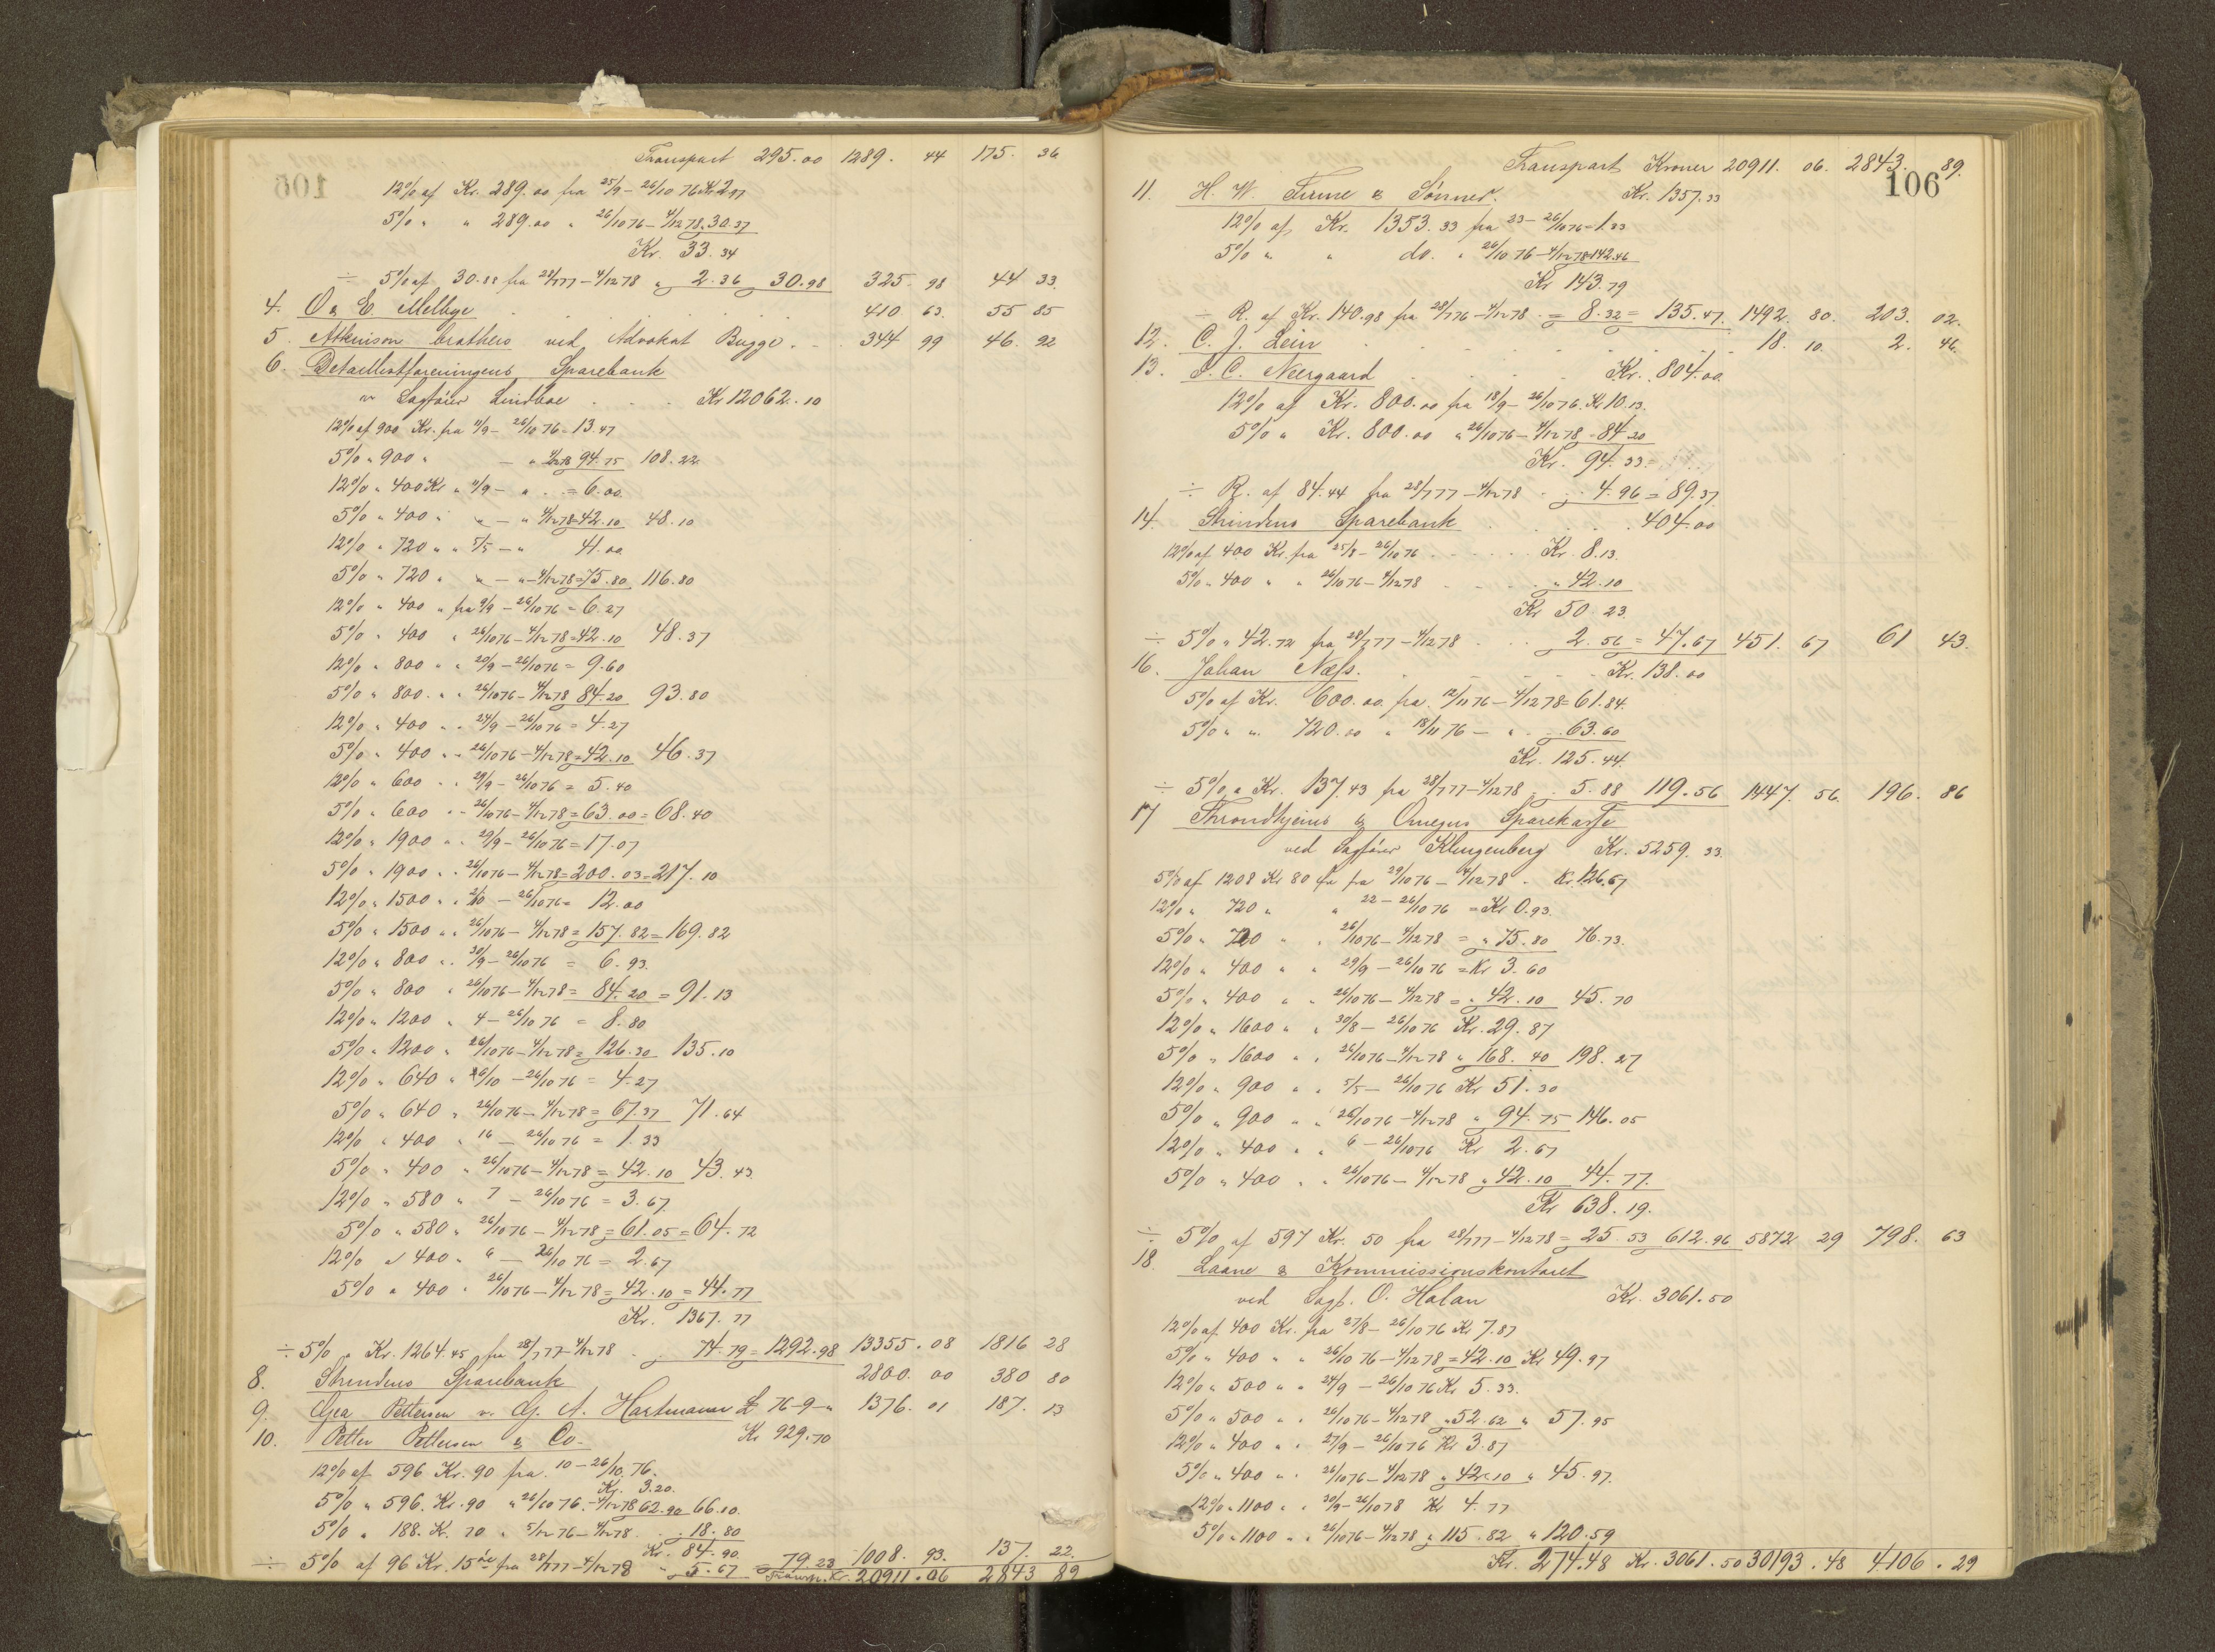 Transport 295.00 1289. 44 175. 36
12% af Kr. 289.00 fra 25/9 - 26/10 76 Kr 2.97
5% " " 289.00 " 26/10 76 - 4/12 78 " 30.37
Kr. 33.34
÷ 5% af 30.88 fra 28/7 77 - 4/12 78 " 2.36 30.98 325. 98 44 33.
4. O & E. Melbye 410. 63. 55 85
5. Atkinson brothers ved Advokat Bugge. 344 99 46. 92
6. Detaillistforeningens Sparebank
v Sagfører Lindboe Kr 12062.10
12% af 900 Kr. fra 11/9 - 26/10 76 = 13.47
5% " 900 " - " 4/12 78 94.75 108.22
12% " 400 Kr " 11/9 - " = 6.00
5% " 400 " " - " 4/12 78 = 42.10 48.10
12% " 720 " " 5/5 - " 41.00
5% " 720 " " - " - 4/12 78 = 75.80 116.80
12% " 400 " fra 9/9 - 26/10 76 = 6.27
5% " 400 " 26/10 76 - 4/12 78 = 42.10 48.37
12% " 800 " " 20/9 - 26/10 76 = 9.60
5% " 800 " " 26/10 76 - 4/12 78 84.20 93.80
12% " 400 " " 24/9 - 26/10 76 = 4.27
5% " 400 " " 26/10 76 - 4/12 78 = 42.10 46.37
12% " 600 " " 29/9 - 26/10 76 = 5.40
5% " 600 " " 26/10 76 - 4/12 78 = 63.00 = 68.40
12% " 1900 " " 29/9 - 26/10 76 = 17.07
5% " 1900 " " 26/10 76 - 4/12 78 = 200.03 = 217.10
12% " 1500 " " 2/10 - 26/10 76 = 12.00
5% " 1500 " " 26/10 76 - 4/12 78 = 157.82 = 169.82
12% " 800 " " 30/9 - 26/10 76 = 6.93
5% " 800 " 26/10 76 - 4/12 78 = 84.20 = 91.13
12% " 1200 " 4 - 26/10 76 = 8.80
5% " 1200 " 26/10 76 - 4/12 78 = 126.30 135.10
12% " 640 " /10 - 26/10 76 = 4.27
5% " 640 " 26/10 76 - 4/12 78 = 67.37 71.64
12% " 400 " 16 - 26/10 76 = 1.33
5% " 400 " 26/10 76 - 4/12 78 = 42.10 43.43
12% " 580 " 7 - 26/10 76 = 3.67
5% " 580 " 26/10 76 - 4/12 78 = 61.05 = 64.72
12% " 400 " 6 - 26/10 76 = 2.67
5% " 400 " 26/10 76 - 4/12 78 = 42.10 = 44.77
Kr. 1367.77
÷ 5% " Kr. 1264.45 fra 28/7 77 - 4/12 78 74.79 = 1292.98 13355.08 1816 28
8. Strindens Sparebank 2800. 00 380 80
9. Pettersen v. G. A. Hartmann £ 76-9-" 1376. 01 187. 13
10. Petter Pettersen & Co. Kr 929.70
12% af 596 Kr. 90 fra 10 - 26/10 76.
Kr. 3.20
5% " 596. Kr. 90 " 26/10 76. - 4/12 78 62.90 66.10
5% " 188. K. 70 " 5/12 76 - 4/12 78 18.80
Kr. 84.90
÷ 5% af 96 Kr. 15 øre fra 28/7 77 - 4/12 78 " 5.67 = 79.23 1008. 93. 137. 22
Transp. Kr. 20911.06 2843 89
106
Transport Kroner 20911. 06. 2843. 89.
11. H. W. Finne & Sønner. Kr. 1357.33
12% af Kr. 1353.33 fra 23 - 26/10 76 = 1.33
5% " " do. " 26/10 76 - 4/12 78 142.46
Kr 143.79
÷ R. af Kr. 140.98 fra 28/7 76 - 4/12 78 = 8.32 = 135.47. 1492. 80. 203. 02.
12. C. J. Lein 18. 10. 2. 46.
13. P. C. Neergaard Kr. 804.00
12% af Kr. 800.00 fra 18/9 - 26/10 76. Kr 10.13.
5% " Kr. 800.00 " 26/10 76 - 4/12 78 = 84.20
Kr. 94.33
÷ R. af 84.44 fra 28/7 77 - 4/12 78 4.96 = 89.37
14. Strindens Sparebank 404.00
12% af 400 Kr. fra 25/8 - 26/10 76 Kr. 8.13
5% " 400 " " 26/10 76 - 4/12 78 " 42.10
Kr 50.23
÷ 5% " 42.72 fra 28/7 77 - 4/12 78 2.56 = 47.67 451. 67 61 43.
16. Johan Næss. Kr. 138.00
5% af Kr. 600.00 fra 12/11 76 - 4/12 78 = 61.84
5% " " 720.00 " 18/11 76 - " 63.60
Kr. 125.44
÷ 5% " Kr. 137.43 fra 28/7 77 - 4/12 78 5.88 119.56 1447. 56. 196. 86
17 Throndhjems & Omegns Sparekasse
ved Sagfører Klingenberg Kr. 5259.33
5% af 1208 Kr 80 fra 29/10 76 - 4/12 78 Kr. 126.67
12% " 720 " " 22 - 26/10 76 = Kr 0.93
5% " 720 " " 26/10 76 - 4/12 78 = " 75.80 76.73
12% " 400 " " 29/9 - 26/10 76 = Kr 3.60
5% " 400 " " 26/10 76 - 4/12 78 = " 42.10 45.70
12% " 1600 " " 30/8 - 26/10 76 Kr. 29.87
5% " 1600 " " 26/10 76 - 4/12 78 " 168.40 198.27
12% " 900 " " 5/5 - 26/10 76 Kr 51.30
5% " 900 " " 26/10 76 - 4/12 78 " 94.75 146.05
12% " 400 " " 6 - 26/10 76 Kr 2.67
5% " 400 " " 26/10 76 - 4/12 78 " 42.10 44.77
Kr 638.19.
÷ 5% af 597 Kr. 50 fra 28/7 77 - 4/12 78 = 25.53 612.96 5872 29 798. 63
18. Laane & Kommissionskontoret
ved Sagf. O. Halan Kr. 3061.50
12% af 400 Kr. fra 27/8 - 26/10 76 Kr 7.87
5% " 400 " " 26/10 76 - 4/12 78 = 42.10 Kr 49.97
12% " 500 " " 24/9 - 26/10 76 Kr 5.33
5% " 500 " " 26/10 76 - 4/12 78 " 52.62 " 57.95
12% " 400 " " 27/9 - 26/10 76 Kr 3.87
5% " 400 " " 26/10 76 - 4/12 78 " 42.10 " 45.97
12% " 1100 " " 30/9 - 26/10 78 Kr 4.77
5% " 1100 " " 26/10 76 - 4/12 78 " 115.82 " 120.59
Kr. 274.48 Kr. 3061.50 30193.48 4106.29